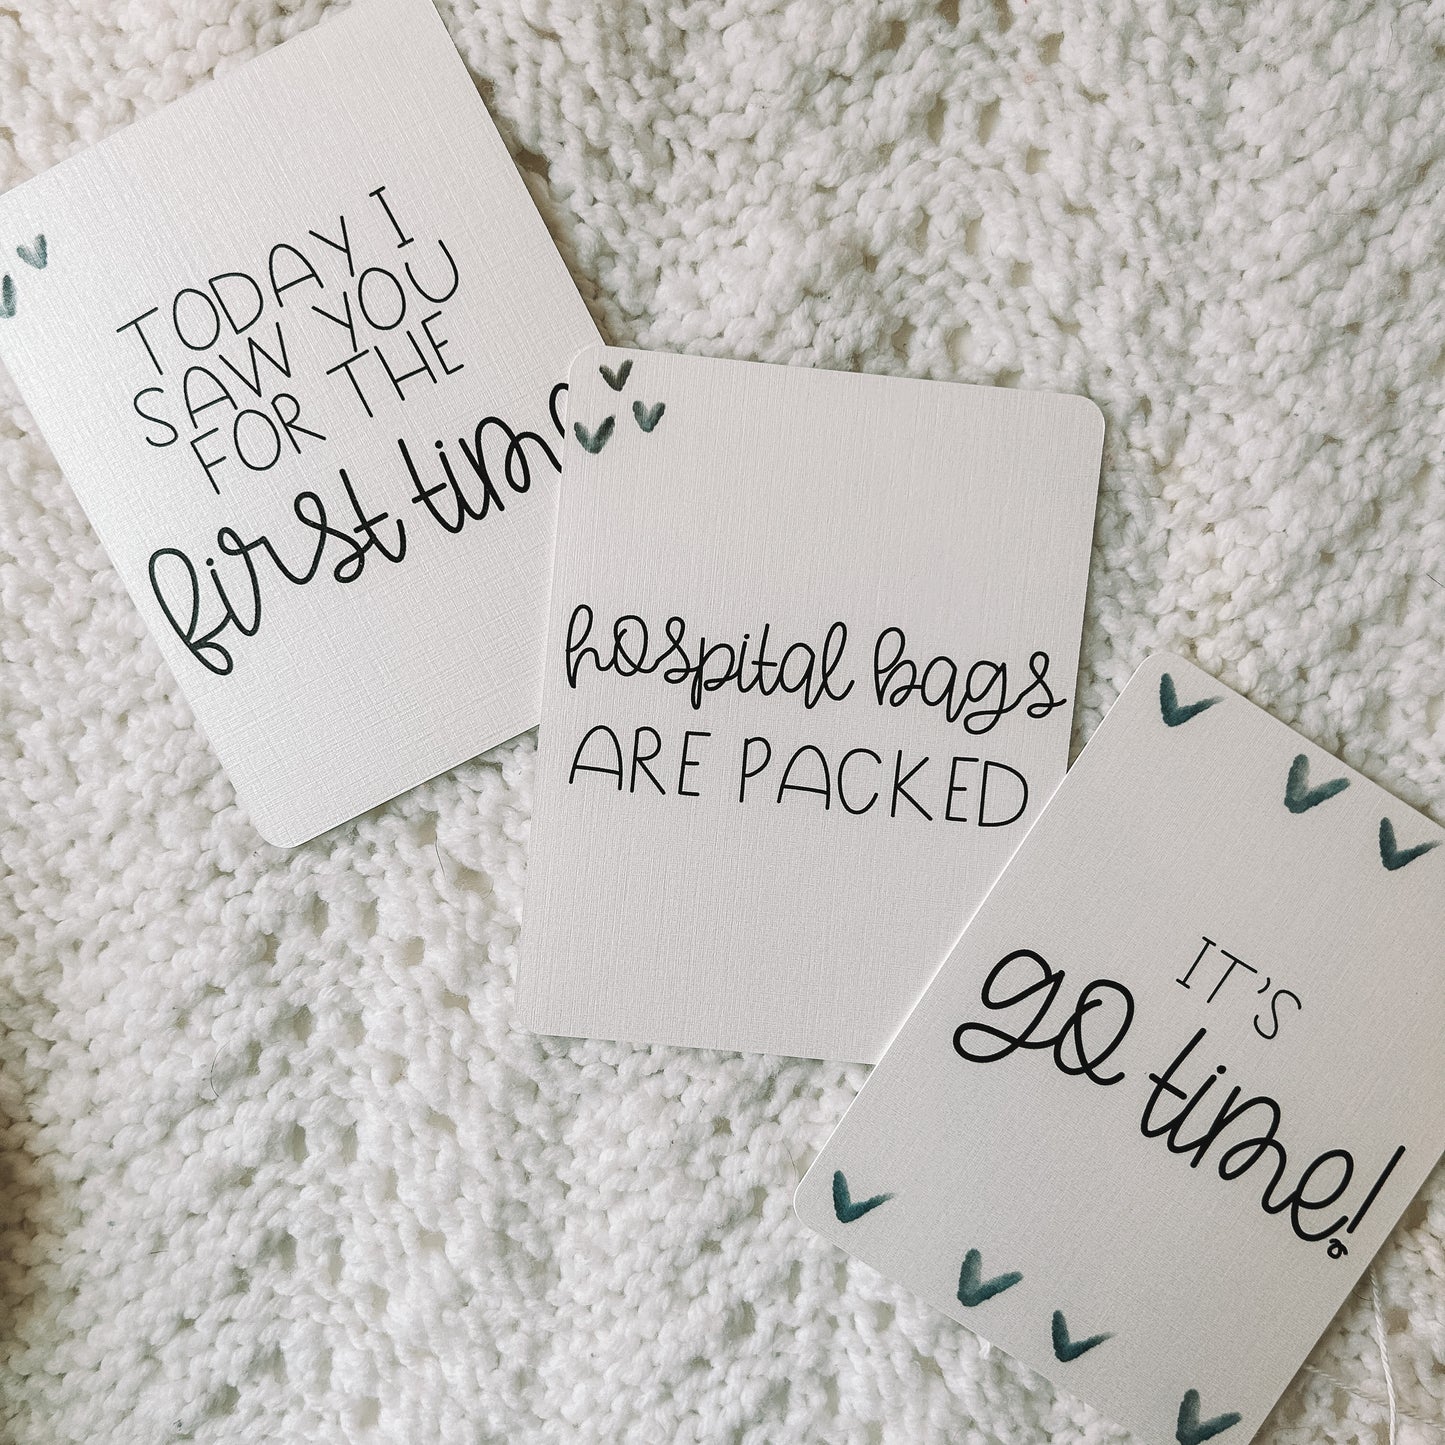 TODAY I
SAW YOU
FOR THE
first time
hospital bags
ARE PACKED
IT'S
go time!